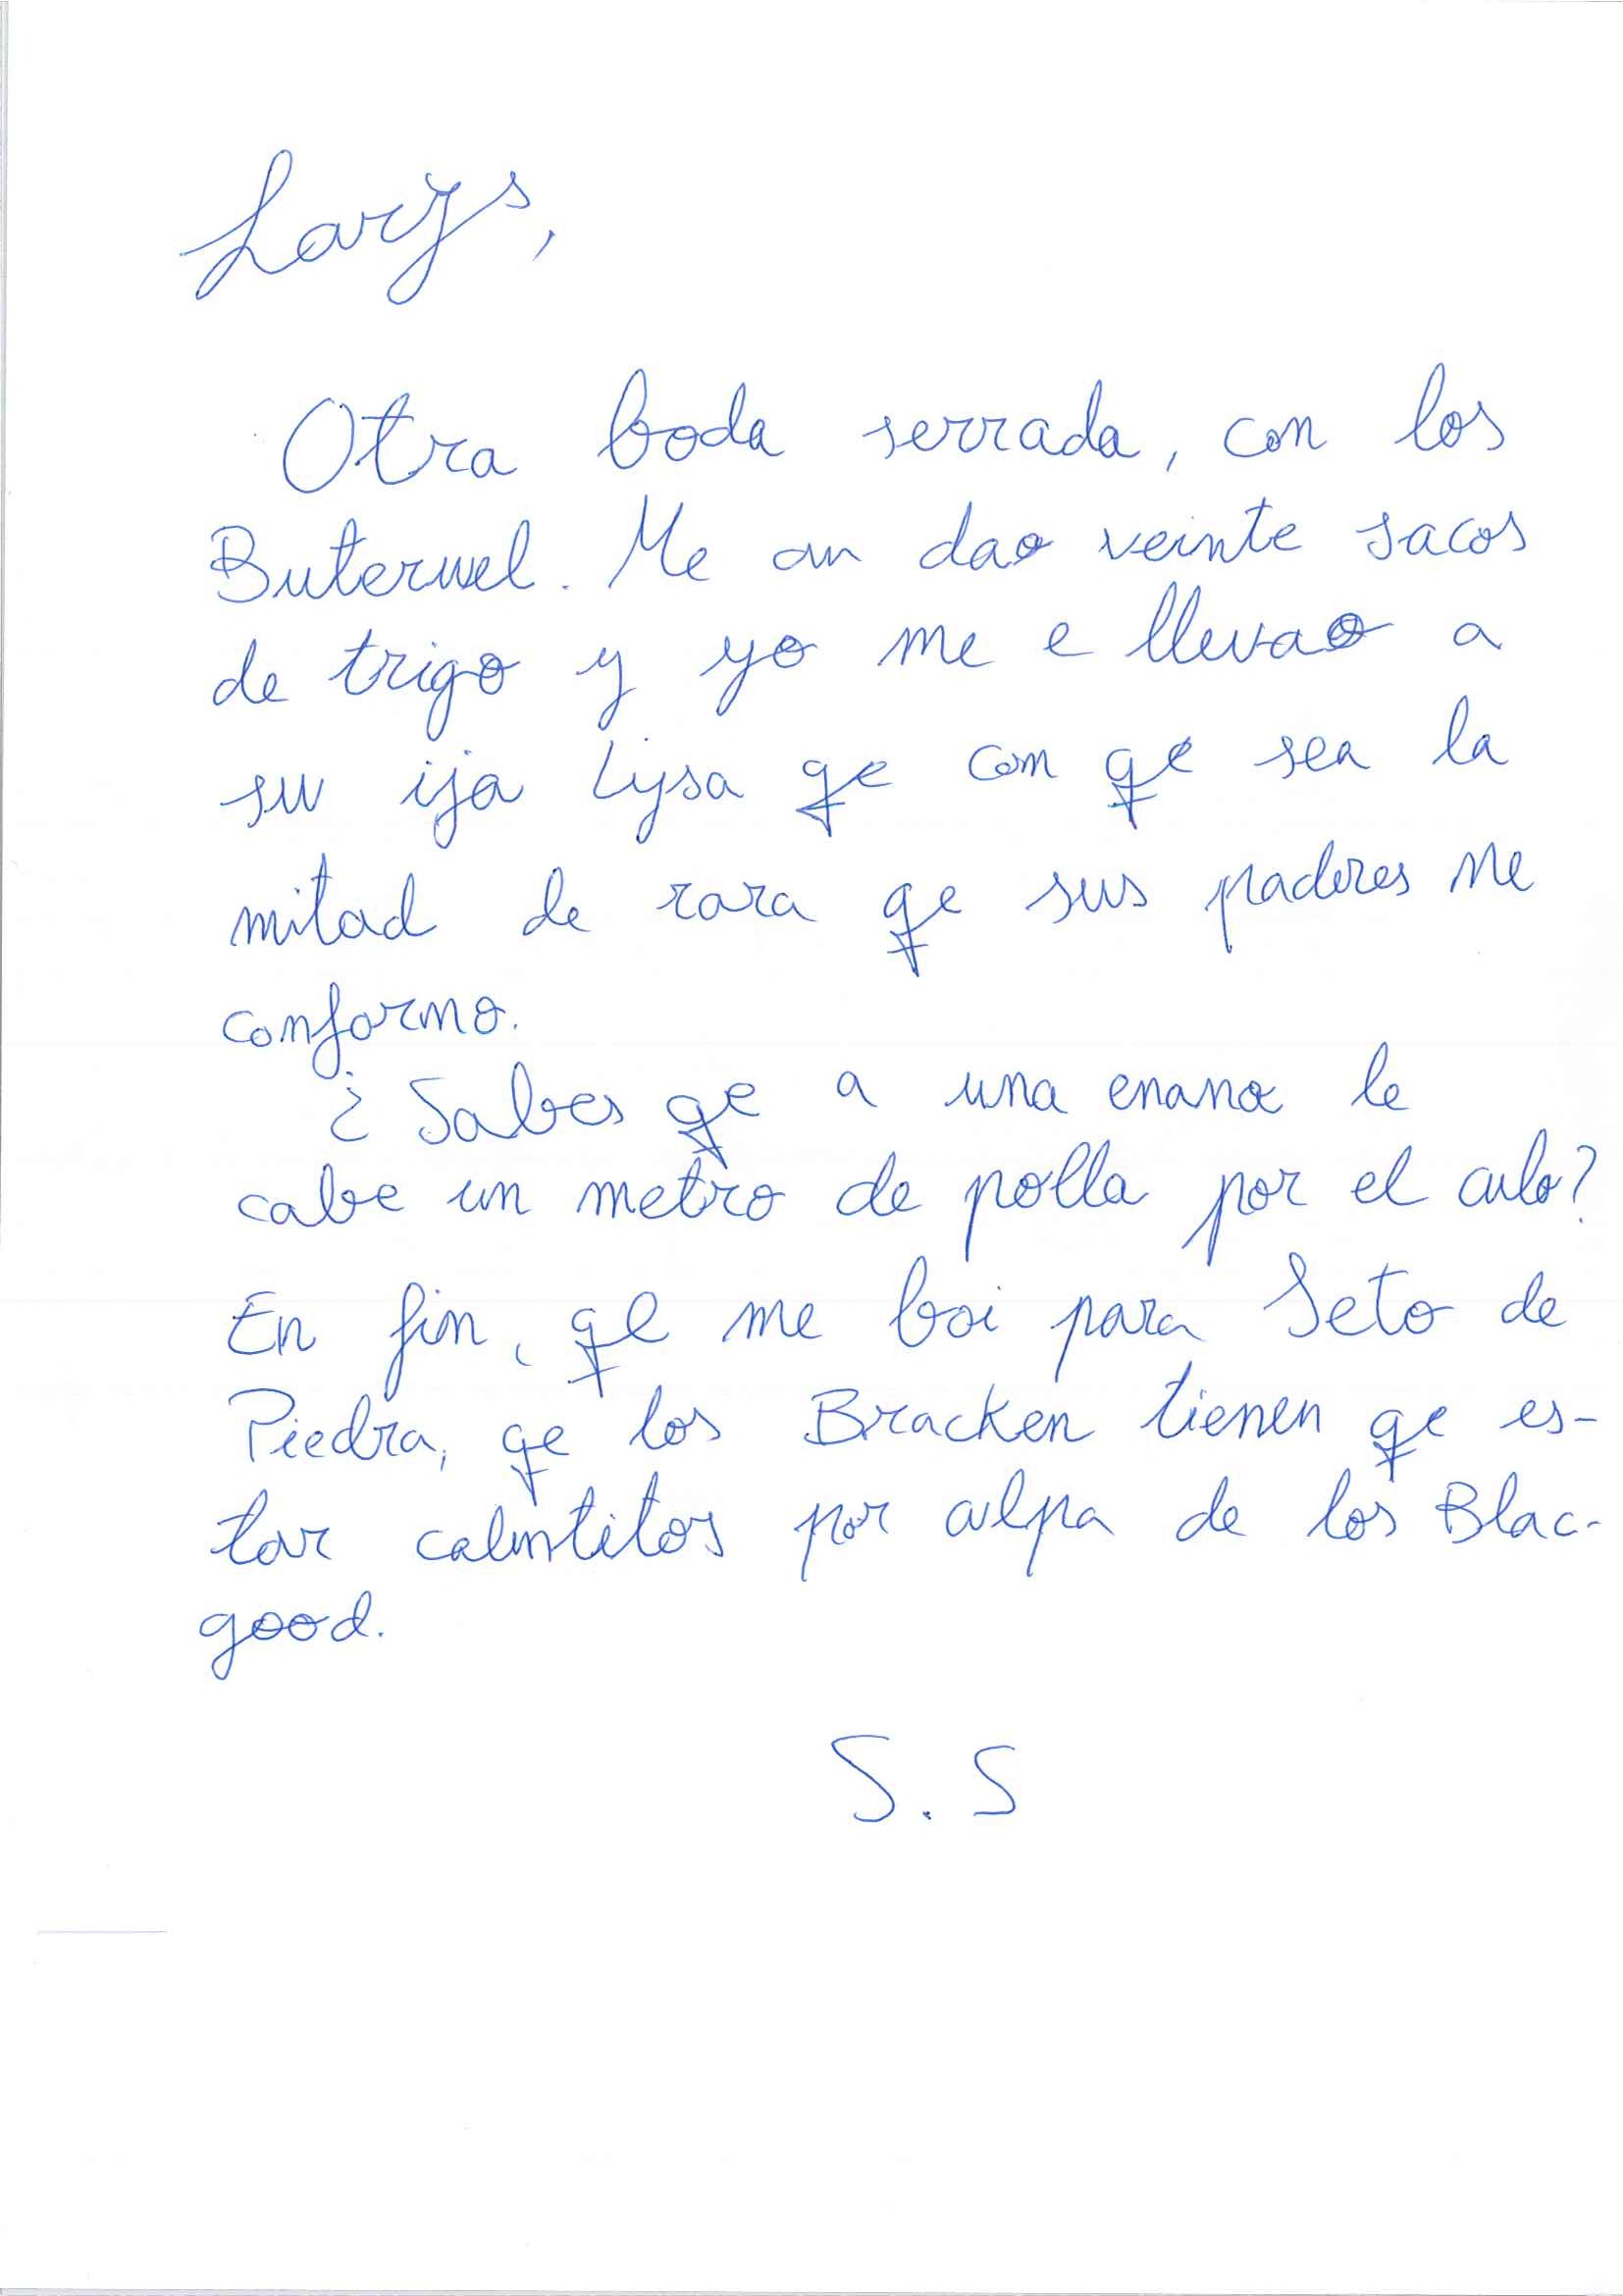 Larys,
Otra boda serrada, con los
Buterwel. Me an dao veinte sacos
de trigo y yo me e llevao a
su ija Lysa qe con qe sea la
mitad de rara qe sus padres me
conformo.
¿Sabes qe a una enana le
cabe un metro de polla por el culo?
En fin, qe me boi para Seto de
Piedra, qe los Bracken tienen qe es-
tar calintitos por culpa de los Blac-
good.
S.S